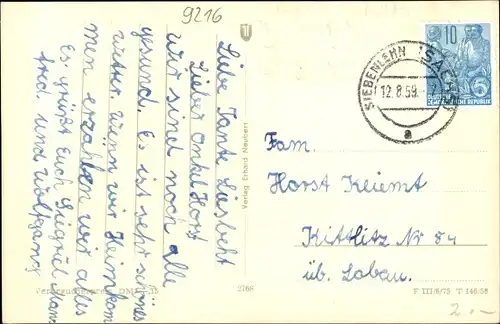 9216
Liebe Tante Lisbeht
Lieber Onkel Horst
wir sind noch alle
gesund. Es ist sehr schönes
wetter wenn wir Heimkom
men erzählen wir alles
Es grüßt Euch Sigrid Man=
fred. und Wolfgang
Verlag Erhard Neubert
Fam.
Horst Kliemt
Kittlitz Nr 84
üb. Löbau.
SIEBENLEHN (SACHS)
12.8.59
a
10
DEUTSCHE DEMOKRATISCHE REPUBLIK
5
Verbraucherpreis DM
2768
F III/6/75 T 146/58
2.-